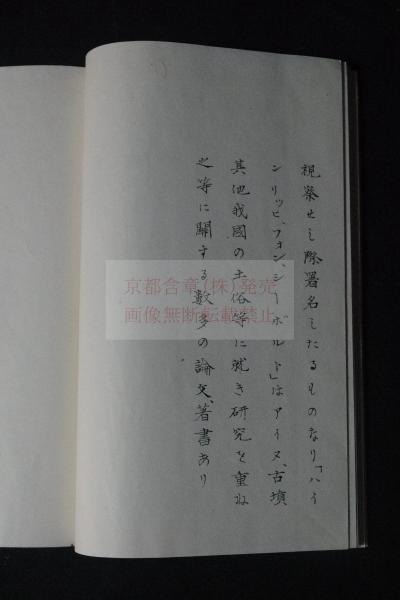 視察せし際署名したるものなり「ハイ
ンリッヒ、フォン、シーボルト」はアイヌ、古墳
其他我國の土俗等に就き研究を重ね
之等に關する數多の論文、著書あり
京都含章(株)発売
画像無断転載禁止